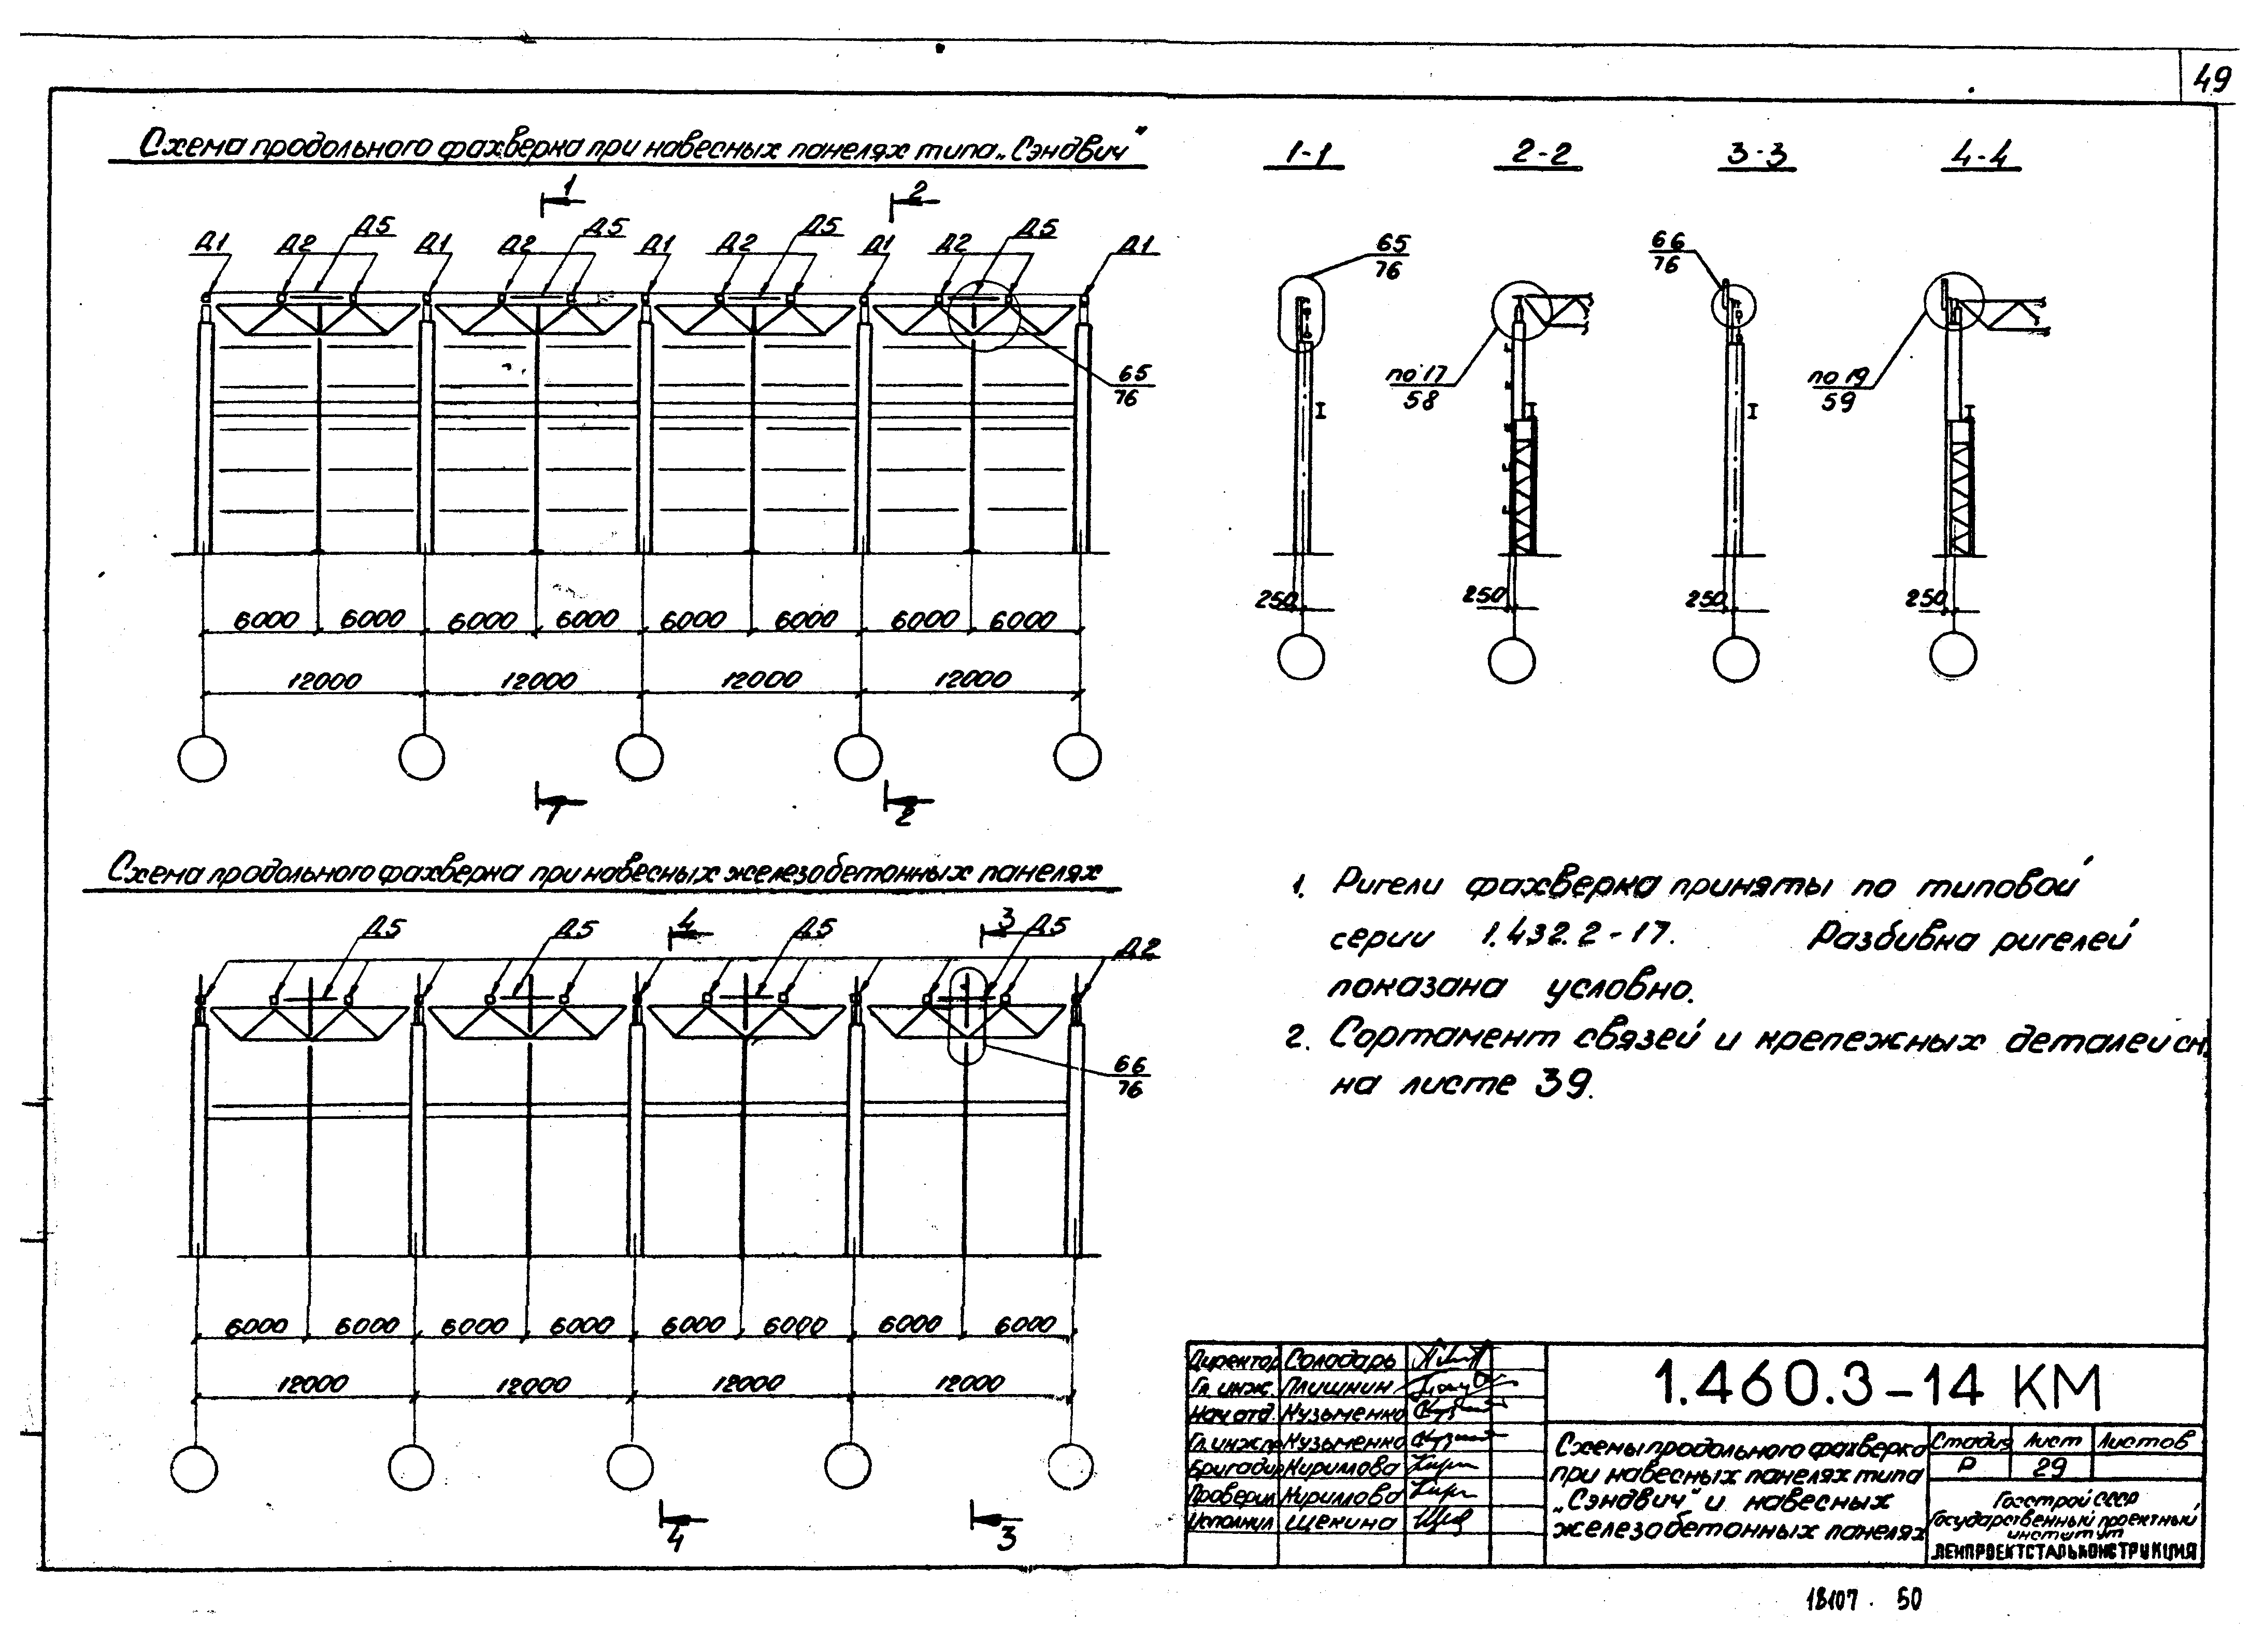 49
Схема продольного фахверка при навесных панелях типа „Сэндвич"
1-1
2-2
3-3
4-4
1
2
Д1 Д2 Д5 Д1 Д2 Д5 Д1 Д2 Д5 Д1 Д2 Д5 Д1
65
76
65
76
по 17
58
66
76
по 19
59
6000 6000 6000 6000 6000 6000 6000 6000
12000 12000 12000 12000
250
250
250
250
1
2
Схема продольного фахверка при навесных железобетонных панелях
4
3
Д5 Д5 Д5 Д5 Д2
66
76
6000 6000 6000 6000 6000 6000 6000 6000
12000 12000 12000 12000
4
3
1. Ригели фахверка приняты по типовой
серии 1.432.2-17. Разбивка ригелей
показана условно.
2. Сортамент связей и крепежных деталей см.
на листе 39.
Директор Солодарь
Гл. инж. Плишкин
Нач отд. Кузьменко
Гл.инж.пр Кузьменко
Бригадир Кириллова
Проверил Кириллова
Исполнил Щекина
1.460.3-14 КМ
Схемы продольного фахверка
при навесных панелях типа
„Сэндвич" и навесных
железобетонных панелях
Стадия Лист Листов
Р 29
Госстрой СССР
Государственный проектный
институт
ЛЕНПРОЕКТСТАЛЬКОНСТРУКЦИЯ
18107 . 50